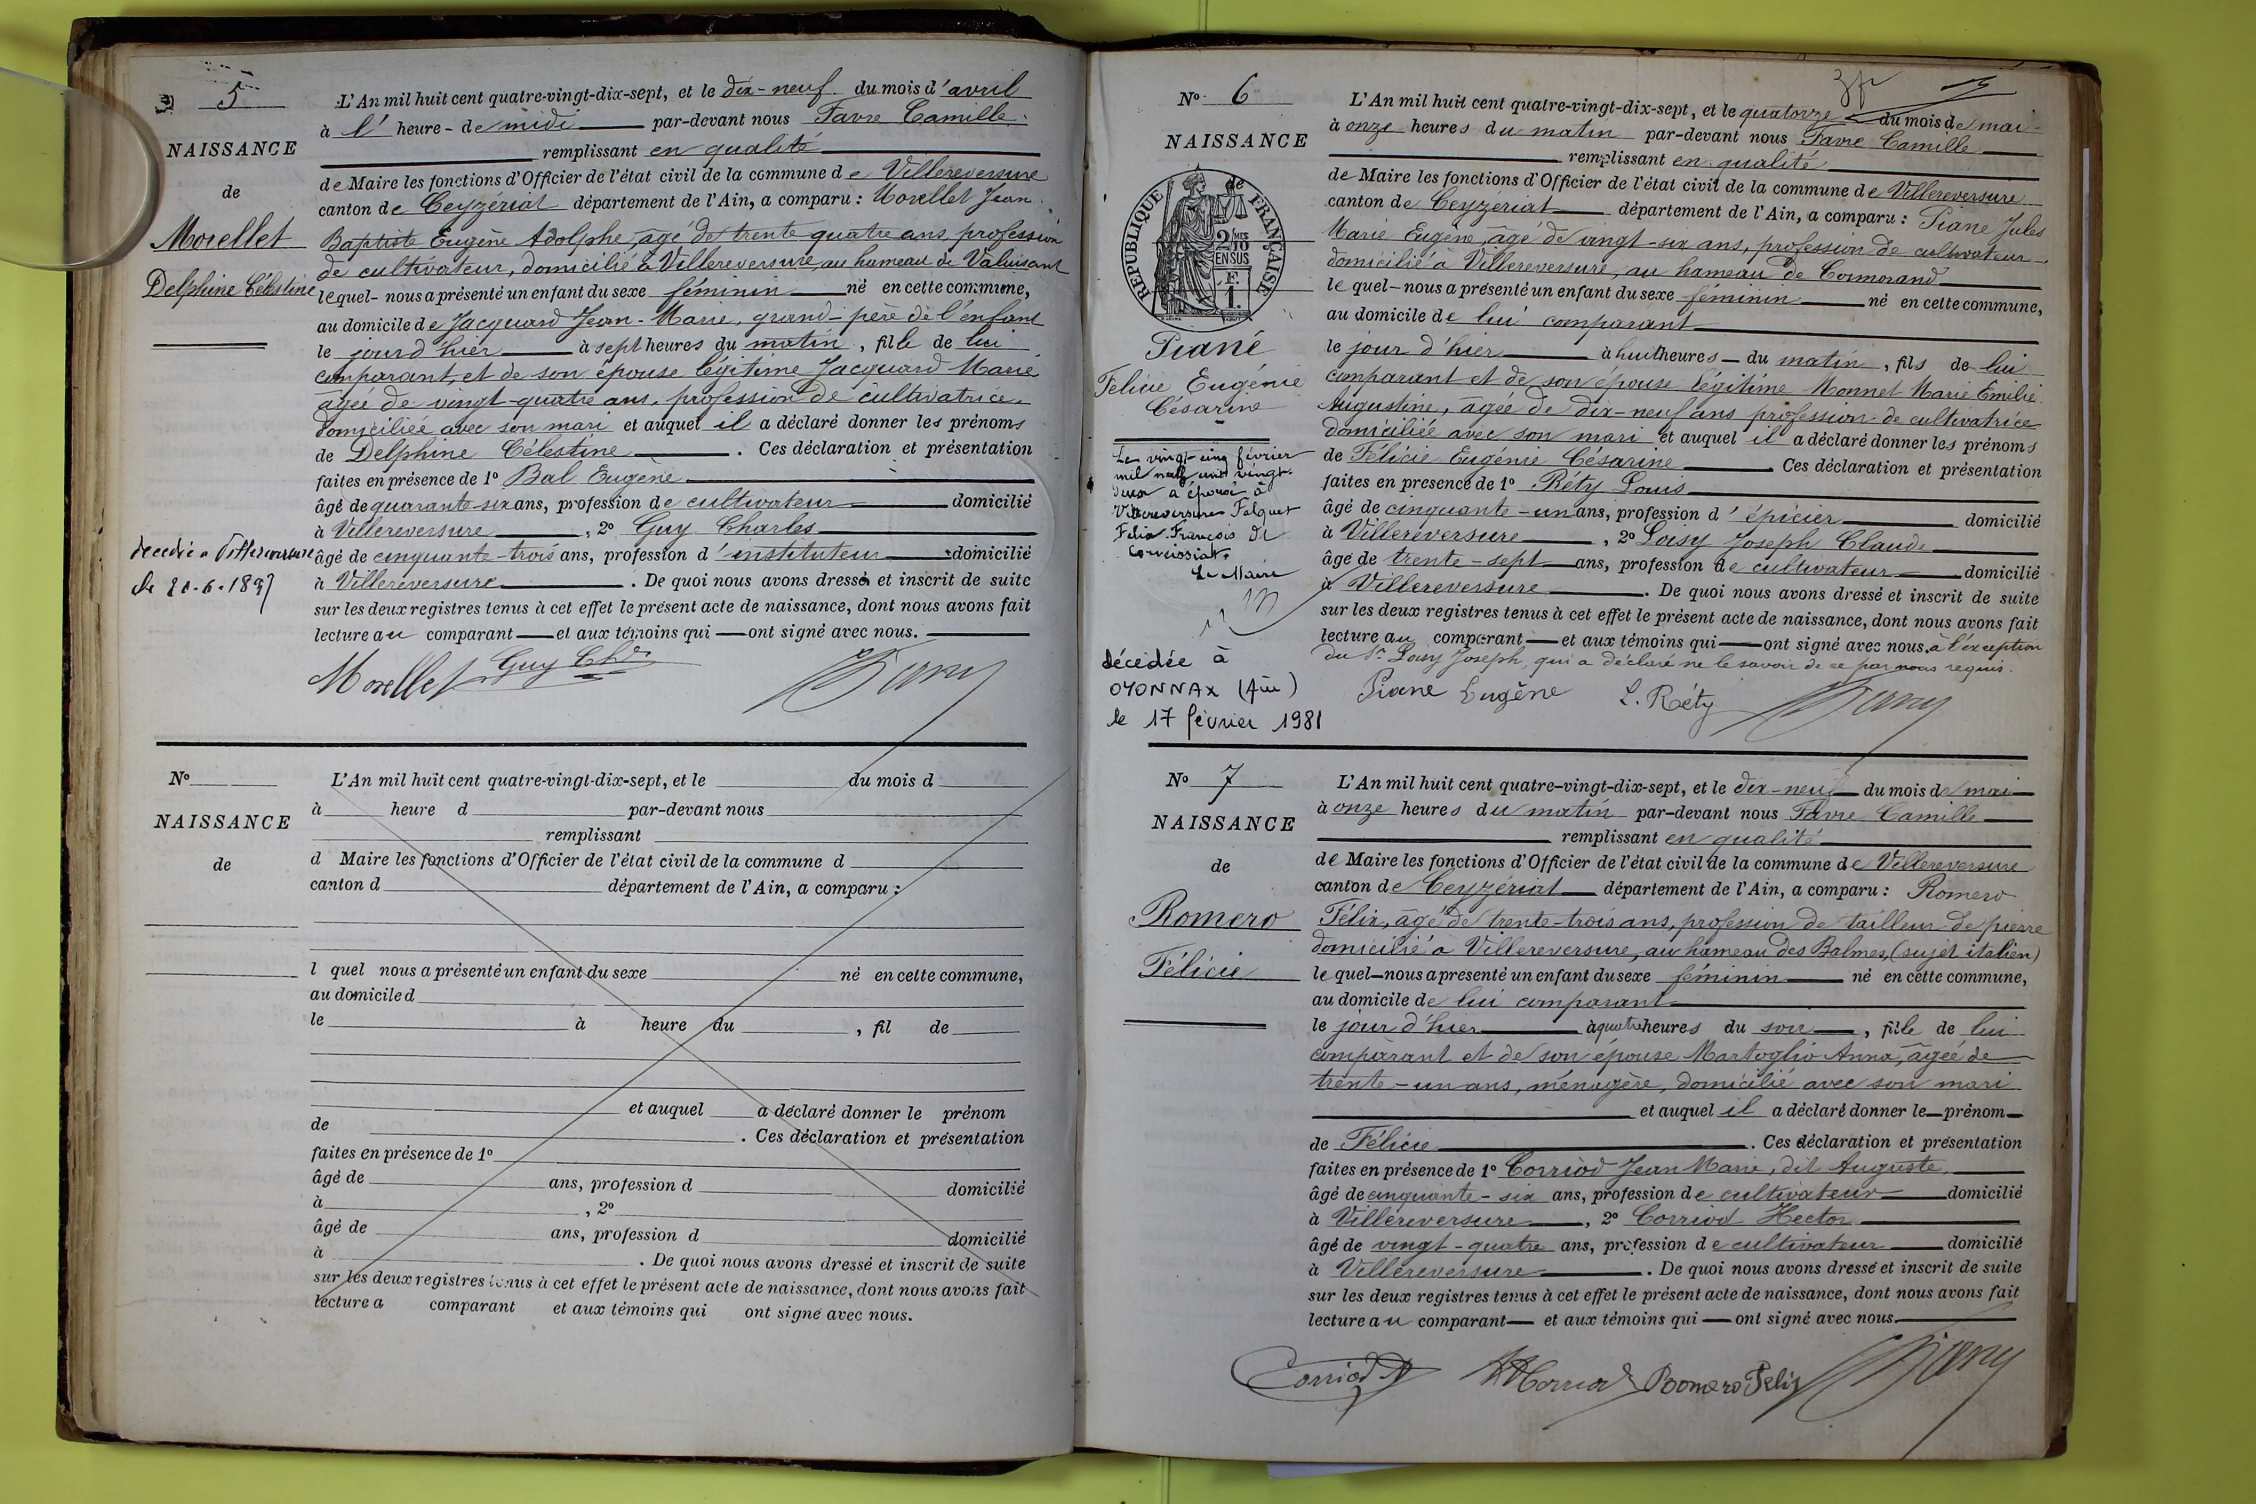 5
NAISSANCE
de
Morellet
Delphine Célestine
L'An mil huit cent quatre-vingt-dix-sept, et le dix-neuf du mois d'avril
à l' heure de midi par-devant nous Favre Camille
remplissant en qualité
de Maire les fonctions d'Officier de l'état civil de la commune de Villereversure
canton de Ceyzériat département de l'Ain, a comparu : Morellet Jean
Baptiste Eugène Adolphe, âgé de trente quatre ans, profession
de cultivateur, domicilié à Villereversure, au hameau de Valuisant
lequel nous a présenté un enfant du sexe féminin né en cette commune,
au domicile de Jacquard Jean-Marie, grand-père de l'enfant
le jour d'hier à sept heures du matin, fille de lui
comparant, et de son épouse légitime Jacquard Marie
âgée de vingt-quatre ans, profession de cultivatrice
domiciliée avec son mari et auquel il a déclaré donner les prénoms
de Delphine Célestine . Ces déclaration et présentation
faites en présence de 1° Bal Eugène
âgé de quarante-six ans, profession de cultivateur domicilié
à Villereversure , 2° Guy Charles
âgé de cinquante-trois ans, profession d'instituteur domicilié
à Villereversure . De quoi nous avons dressé et inscrit de suite
sur les deux registres tenus à cet effet le présent acte de naissance, dont nous avons fait
lecture au comparant et aux témoins qui ont signé avec nous.
Morellet Guy Chs
décédée à Villereversure
le 20.6.1897
N°
NAISSANCE
de
L'An mil huit cent quatre-vingt-dix-sept, et le du mois d
à heure d par-devant nous
remplissant
d Maire les fonctions d'Officier de l'état civil de la commune d
canton d département de l'Ain, a comparu :
l quel nous a présenté un enfant du sexe né en cette commune,
au domicile d
le à heure du , fil de
et auquel a déclaré donner le prénom
de . Ces déclaration et présentation
faites en présence de 1°
âgé de ans, profession d domicilié
à , 2°
âgé de ans, profession d domicilié
à . De quoi nous avons dressé et inscrit de suite
sur les deux registres tenus à cet effet le présent acte de naissance, dont nous avons fait
lecture a comparant et aux témoins qui ont signé avec nous.
N° 6
NAISSANCE
de
RÉPUBLIQUE FRANÇAISE
2 MES
10
EN SUS
F.
1.
Piané
Félicie Eugénie
Césarine
Le vingt cinq février
mil neuf cent vingt
deux a épousé à
Villereversure Falquet
Félix François de
Corveissiat
Le Maire
décédée à
OYONNAX (Ain)
le 17 février 1981
L'An mil huit cent quatre-vingt-dix-sept, et le quatorze du mois de mai
à onze heures du matin par-devant nous Favre Camille
remplissant en qualité
de Maire les fonctions d'Officier de l'état civil de la commune de Villereversure
canton de Ceyzériat département de l'Ain, a comparu : Piané Jules
Marie Eugène, âgé de vingt-six ans, profession de cultivateur
domicilié à Villereversure, au hameau de Cormorand
lequel nous a présenté un enfant du sexe féminin né en cette commune,
au domicile de lui comparant
le jour d'hier à huit heures du matin, fils de lui
comparant et de son épouse légitime Monnet Marie Emilie
Augustine, âgée de dix-neuf ans profession de cultivatrice
domiciliée avec son mari et auquel il a déclaré donner les prénoms
de Félicie Eugénie Césarine . Ces déclaration et présentation
faites en présence de 1° Réty Louis
âgé de cinquante-un ans, profession d'épicier domicilié
à Villereversure , 2° Loisy Joseph Claude
âgé de trente-sept ans, profession de cultivateur domicilié
à Villereversure . De quoi nous avons dressé et inscrit de suite
sur les deux registres tenus à cet effet le présent acte de naissance, dont nous avons fait
lecture au comparant et aux témoins qui ont signé avec nous, à l'exception
du Sr Loisy Joseph, qui a déclaré ne le savoir de ce par nous requis.
Piane Eugène L. Réty
N° 7
NAISSANCE
de
Romero
Félicie
L'An mil huit cent quatre-vingt-dix-sept, et le dix-neuf du mois de mai
à onze heures du matin par-devant nous Favre Camille
remplissant en qualité
de Maire les fonctions d'Officier de l'état civil de la commune de Villereversure
canton de Ceyzériat département de l'Ain, a comparu : Romero
Félix, âgé de trente-trois ans, profession de tailleur de pierre
domicilié à Villereversure, au hameau des Balmes, (sujet italien)
lequel nous a présenté un enfant du sexe féminin né en cette commune,
au domicile de lui comparant
le jour d'hier à quatre heures du soir , fille de lui
comparant et de son épouse Martoglio Anna, âgée de
trente-un ans, ménagère, domicilié avec son mari
et auquel il a déclaré donner le prénom
de Félicie . Ces déclaration et présentation
faites en présence de 1° Corriod Jean Marie, dit Auguste,
âgé de cinquante-six ans, profession de cultivateur domicilié
à Villereversure , 2° Corriod Hector
âgé de vingt-quatre ans, profession de cultivateur domicilié
à Villereversure . De quoi nous avons dressé et inscrit de suite
sur les deux registres tenus à cet effet le présent acte de naissance, dont nous avons fait
lecture au comparant et aux témoins qui ont signé avec nous.
Corriod A HCorriod Romero Felix